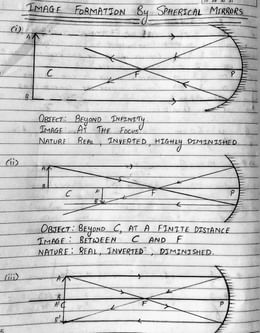 IMAGE FORMATION By SPHERICAL MIRRORS
(i)
A
C
F
P
B
OBJECT: BEYOND INFINITY
IMAGE AT THE FOCUS
NATURE REAL, INVERTED, HIGHLY DIMINISHED
(ii)
A
C
A'
F
P
B
B'
OBJECT: BEYOND C, AT A FINITE DISTANCE
IMAGE: BETWEEN C AND F
NATURE: REAL, INVERTED, DIMINISHED.
(iii)
A
B
C
F
P
B'